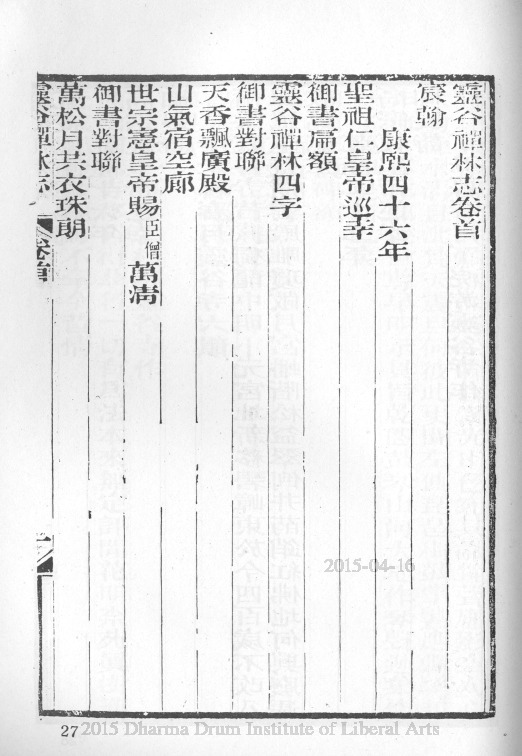 靈谷禪林志卷首
宸翰
康熙四十六年
聖祖仁皇帝巡幸
御書扁額
靈谷禪林四字
御書對聯
天香飄廣殿
山氣宿空廊
世宗憲皇帝賜臣僧萬清
御書對聯
萬松月共衣珠朗
靈谷禪林志 卷首 一
2015-04-16
27 2015 Dharma Drum Institute of Liberal Arts